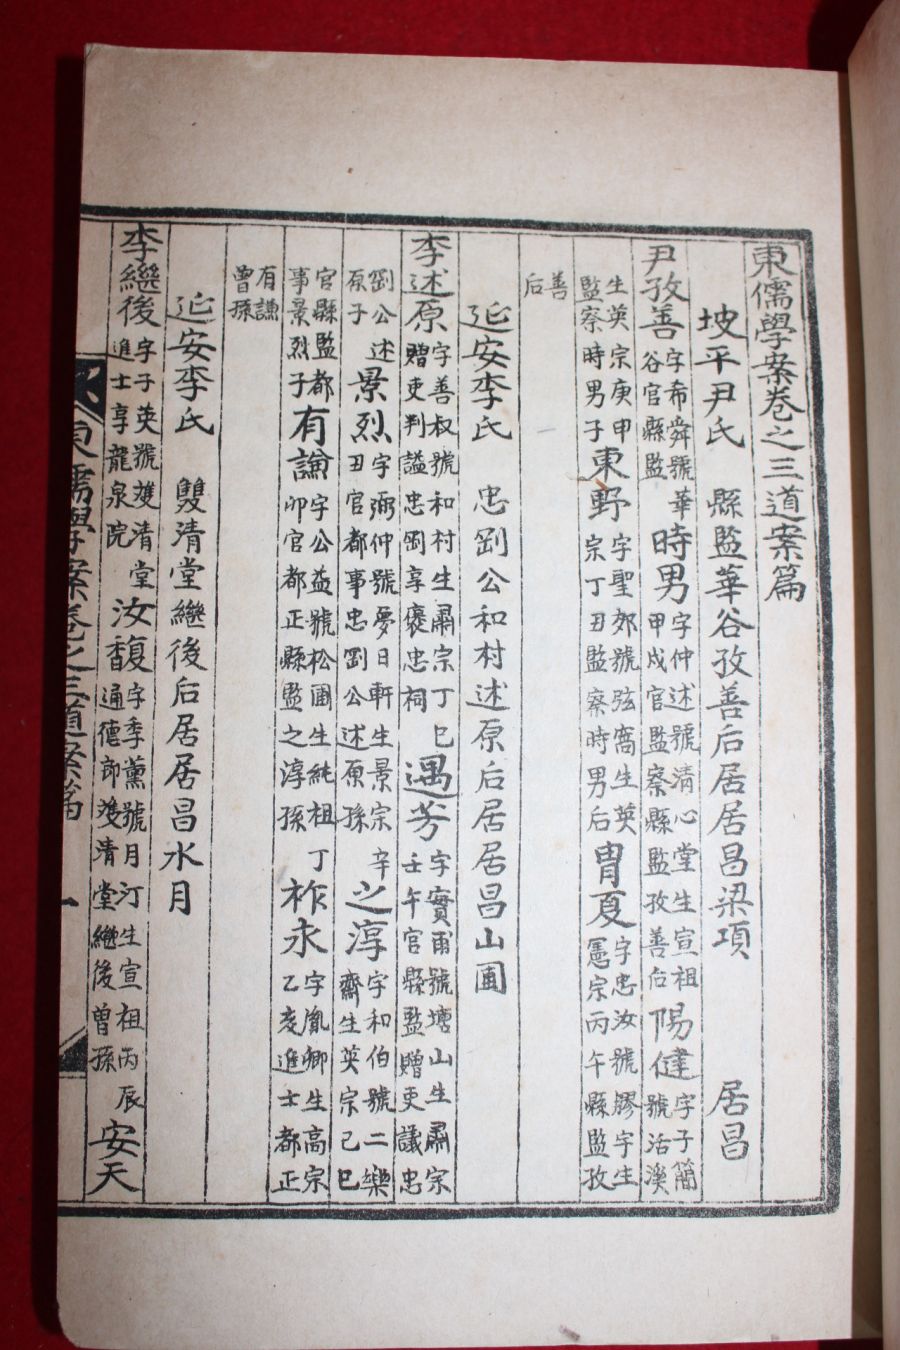 東儒學案卷之三道案篇
坡平尹氏 縣監華谷孜善后居居昌梁項 居昌
尹孜善 字希舜號華谷官縣監 時男 字仲述號清心堂生宣祖甲戍官監察縣監孜善后 陽健 字子簡號活溪
生英宗庚甲監察時男子 東野 字聖郊號弦窩生英宗丁丑監察時男后 冑夏 字忠汝號膠宇生憲宗丙午縣監孜
善后
延安李氏 忠剛公和村述原后居居昌山圃
李述原 字善叔號和村生肅宗丁巳贈吏判謚忠剛享褒忠祠 遇芳 字實甫號塘山生肅宗壬午官縣監贈吏議忠
剛公述原子 景烈 字弼仲號夢日軒生景宗辛丑官都事忠剛公述原孫 之淳 字和伯號二樂齋生英宗己巳
官縣監都事景烈子 有謙 字公益號松圃生純祖丁卯官都正縣監之淳孫 祚永 字胤卿生高宗乙亥進士都正
有謙曾孫
延安李氏 雙清堂繼後后居居昌水月
李繼後 字子英號雙清堂進士享龍泉院 汝馥 字季薰號月汀生宣祖丙辰通德郎雙清堂繼後曾孫 安天
東儒學案卷之三道案篇 一